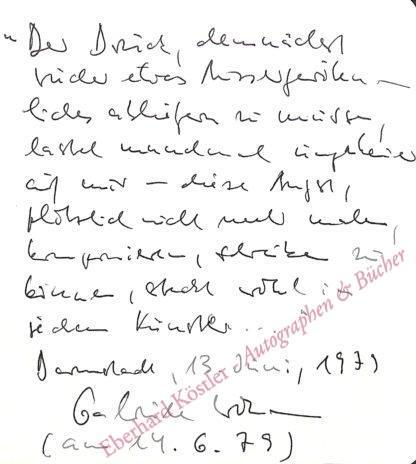 "Der Druck, demnächst
wieder etwas Aussergewöhn-
liches abliefern zu müssen,
lastet manchmal ungeheuer
auf mir – diese Angst,
plötzlich nicht mehr malen,
komponieren, schreiben zu
können, steckt wohl in
jedem Künstler....
Darmstadt, 13. Juni, 1979
Gabriele Wohmann
(am 14.6.79)
Eberhard Köstler - Autographen & Bücher